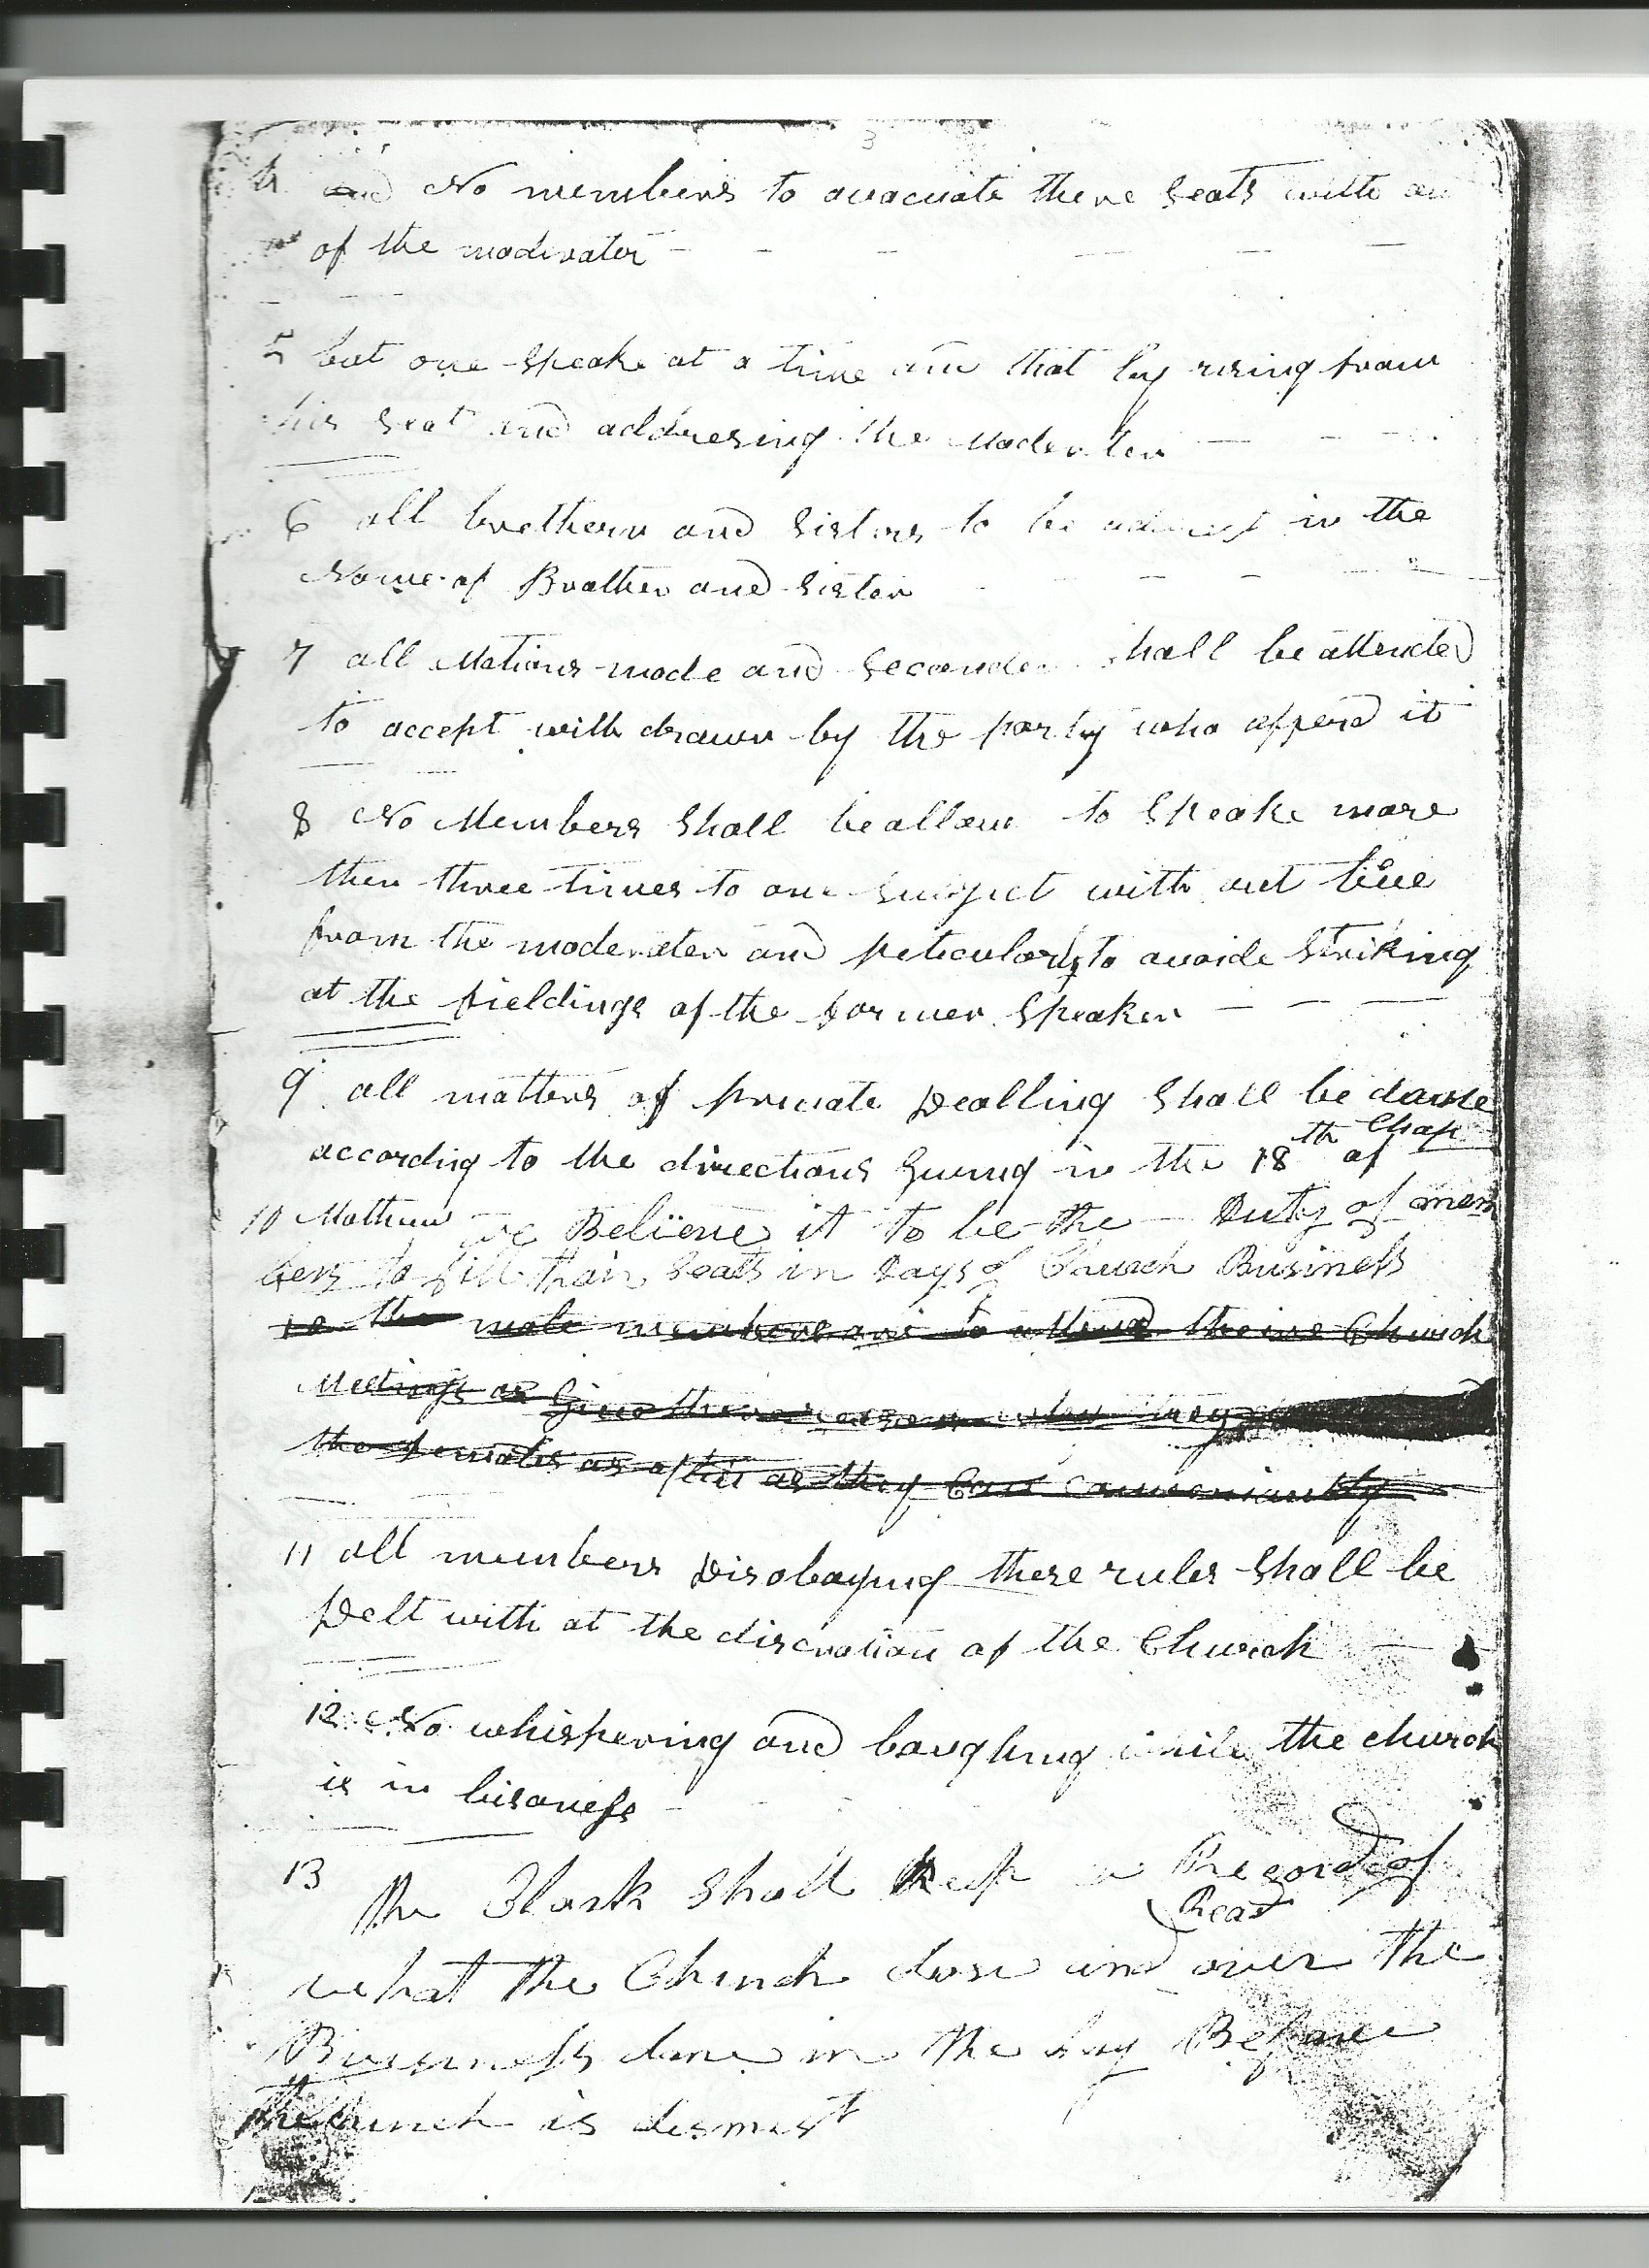 3
4 and No members to avacuate there seats with
of the moderator
5 but one speake at a time and that by rising from
his seat and addresing the Moderater
6 all brethern and sisters to be adrest in the
Name of Brother and sister
7 all Motions made and seconded shall be attended
to accept with drawn by the party who afferd it
8 No Members shall be allow to speake more
then three times to one subject with out
from the moderater and peticulorly to avoide striking
at the fieldings of the former speaker
9 all matters of private Dealling shall be
according to the directions giving in the 18th of Chap
10 Mathew we Believe it to be the Duty of mem
bers to fill thair seats in Days of Church Business
male members are to attend theire Church
Meetings or Give there reason when they
the females as often as they can conveniantly
11 all members Disobaying these rules shall be
Delt with at the discration of the Church
12 No whispering and laughing while the church
is in bisaness
13 the Clark shall keep a Record of
Read
what the Church dose and over the
Buserness done in the day Before
the church is dismist